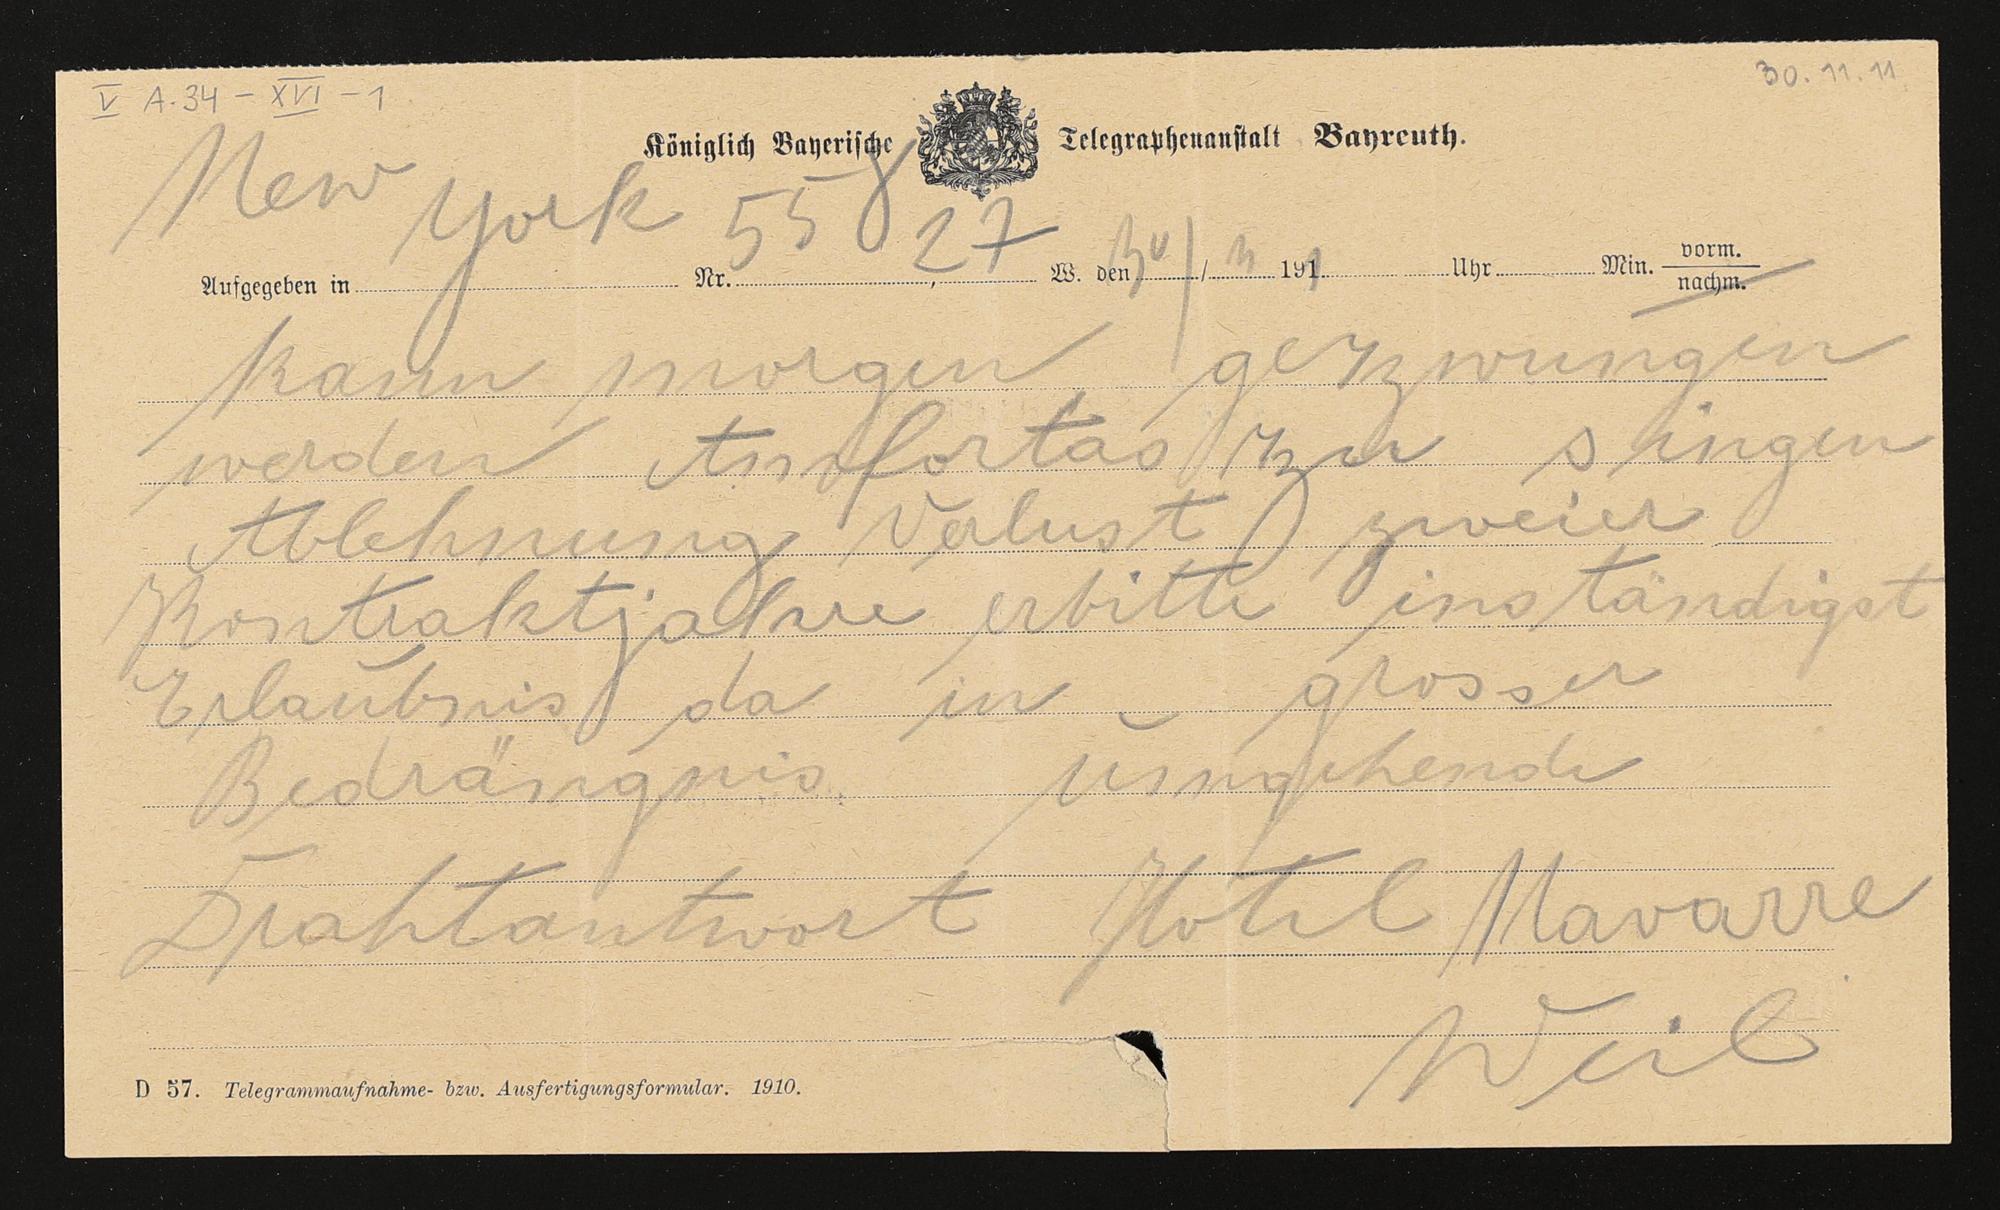 V A.34 – XVI – 1
30.11.11
Königlich Bayerische Telegraphenanstalt Bayreuth.
New York 558 27
Aufgegeben in Nr. , W. den 30/ / 11 191 1 Uhr Min. vorm. nachm.
kann morgen gezwungen
werden Amfortas zu singen
Ablehnung Verlust zweier
Kontraktjahre erbitte inständigst
Erlaubnis da in grosser
Bedrängnis. umgehende
Drahtantwort Hotel Navarre
Weil
D 57. Telegrammaufnahme- bzw. Ausfertigungsformular. 1910.